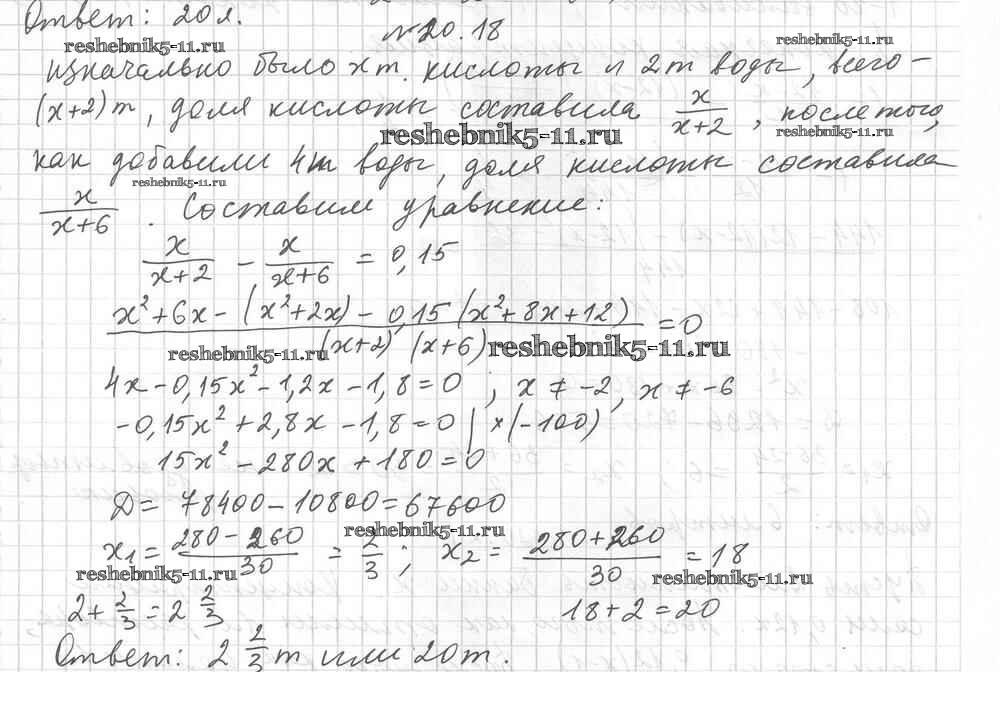 Ответ: 20 л.
№20.18
reshebnik5-11.ru
reshebnik5-11.ru
изначально было x т. кислоты и 2 т воды, всего –
(x+2) т, доля кислоты составила x/(x+2), после того,
reshebnik5-11.ru
reshebnik5-11.ru
как добавили 4 т воды, доля кислоты составила
reshebnik5-11.ru
x/(x+6). Составим уравнение:
x/(x+2) - x/(x+6) = 0,15
(x²+6x-(x²+2x)-0,15(x²+8x+12))/((x+2)(x+6)) = 0
reshebnik5-11.ru
reshebnik5-11.ru
4x-0,15x²-1,2x-1,8=0 ; x≠-2, x≠-6
-0,15x²+2,8x-1,8=0 | ×(-100)
15x²-280x+180=0
D= 78400-10800=67600
reshebnik5-11.ru
x₁= (280-260)/30 = 2/3 ; x₂= (280+260)/30 = 18
reshebnik5-11.ru
reshebnik5-11.ru
2+2/3=2 2/3 18+2=20
Ответ: 2 2/3 т или 20 т.